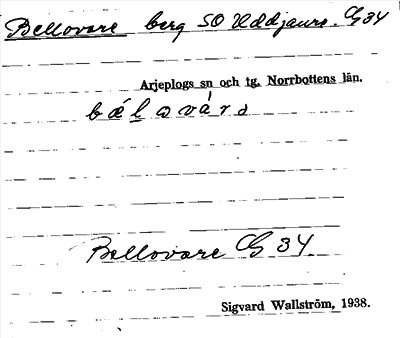 Bellovare berg SO Uddjaure. Cg 34
Arjeplogs sn och tg. Norrbottens län.
bælavárə
Bellovare Cg 34.
Sigvard Wallström, 1938.